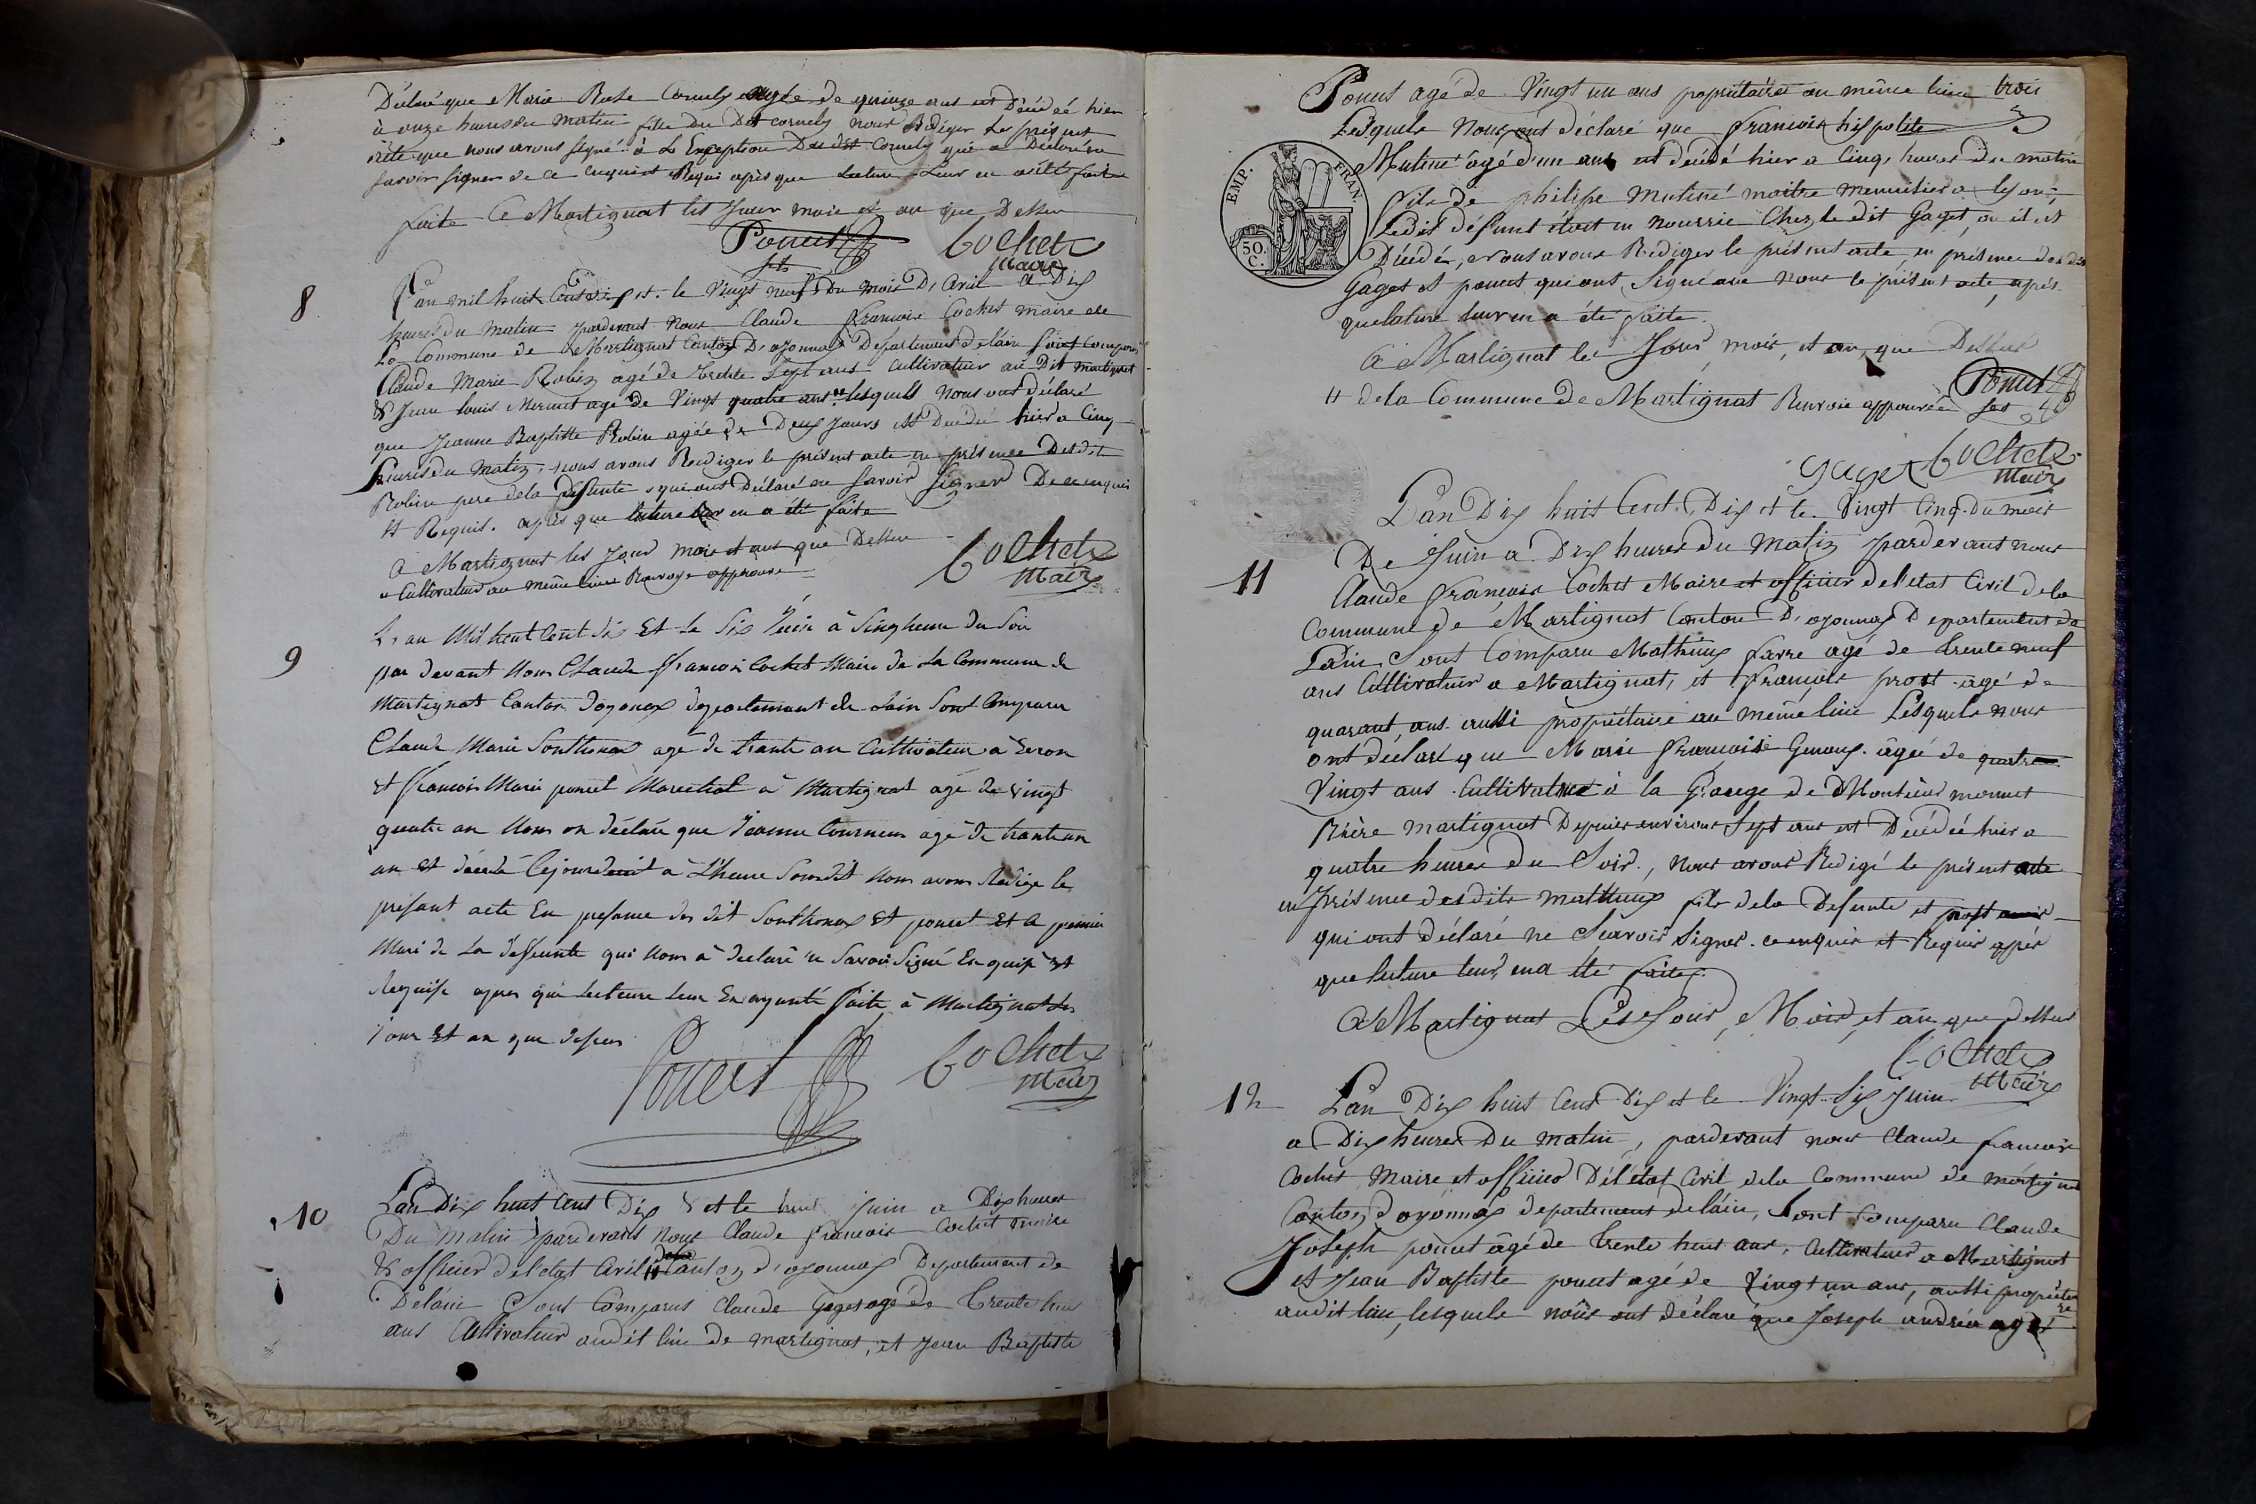 Déclaré que Marie Rose Cornely agée de quinze ans est Décédée hier
à onze heures du matin fille du Dit cornely nous Rédiger Le présent
acte que nous avons signé à L'Exception Du dit Cornely qui a Déclaré ne
savoir signer de ce enquis et Requi après que Lecture Leur en a été faite
faite A Martignat les Jour mois et an que Dessu
Poncet fils Cochet Maire
8
L'an mil huit Cent dix et le Vingt neuf Du mois D'Avril à Dix
heures du Matin pardevant Nous Claude francois Cochet maire de
La Commune de Martignat Canton D'oyonnax Département de lain sont comparu
Claude Marie Robin agé de trente sept ans Cultivateur au Dit martignat
& Jean louis Mermet agé de Vingt quatre ans lesquels Nous ont déclaré
que Jeanne Baptiste Robin agée de Deux Jours est Décédé hier à Cinq
heures du Matin, nous avons Rediger le présent acte en présence Desdit
Robin pere de la defunte qui ont Déclaré ne savoir signer De ce enquis
et Requis. après que lecture leur en a été faite
A Martignat les Jour mois et ans que Dessu
Cultivateur au même lieu Renvoye approuvé
Cochet Maire
9
L'an Mil huit Cent dix Et Le Six Juin à Cinq heure du Soir
par devant Nous Claude françois Cochet Maire de La Commune de
Martignat Canton doyonax departement de Lain Sont Comparu
Claude Marie Sonthonax agé de trante an Cultivateur à Evron
Et françois Marie poncet Marechal à Martignat agé de vingt
quatre an Nous on déclaré que Jeanne Tournieu agé de trante un
an Et décédé Cejourduit à L'heure Sousdit Nous avons Redigé le
présant acte En presance des dit Sonthonax Et poncet Et le premier
Mari de La deffunte qui Nous à declaré ne Savoir Signé Enquis Et
Requise apres que Lecteure Leur En ayant été faite à Martignat Les
Jour Et an que dessus
Poncet Cochet Maire
10
L'an Dix huit cent Dix & et le huit juin a Dix heures
Du Matin pardevant Nous Claude francois Cochet maire
& officier del'etat Civil Canton d'oyonnax Departement de
Delain Sont Comparus Claude Gaget agé de trente huit
ans Cultivateur audit lieu de martignat, et Jean Baptiste
Poncet agé de Vingt un ans proprietaires au même lieu trois
Lesquels Nous ont déclaré que francois hispolite
Mutinet âgé d'un ans est décédé hier a Cinq heures du matin
EMP. FRAN.
50. C.
fils de philipe Mutiné maitre menuisier a lyon,
Ledit défunt étoit en nourrice Chez le dit Gaget, ou il est
Décédé, nous avons Rédiger le présent acte en présence des dit
Gaget et poncet qui ont signé avec Nous le présent acte, après
que lecture leur en a été faite.
A Martignat les Jour, mois, et an, que Dessus
de la Commune De Martignat Renvoie approuvée
Poncet fils
Gaget Cochet Maire
11
L'an Dix huit Cent Dix et le Vingt Cinq Du mois
De Juin a Dix heures du Matin pardevant nous
Claude François Cochet Maire et officier del'etat Civil de la
Commune de Martignat Canton D'oyonnax Departement de
Lain, Sont Comparu Mathieux favre agé de trente neuf
ans Cultivateur a Martignat, et François prost agé de
quarant ans aussi propriétaire au même lieu Lesquels nous
ont declaré que Marie Françoise Genoux agée de quatre
Vingt ans Cultivatrice à la Grange de Monsieur monnet
Rière martignat Depuis environs Sept ans est Décédée hier a
quatre heures du Soir, Nous avons Redigé le présent acte
en présence desdits Mathieux fils de la Defunte et prost
qui ont déclaré ne Sçavoir signer. ce enquis et Requis après
que lecture leur, en a été faite.
A Martignat Les Jour, Mois, et an que dessus
Cochet Maire
12
L'an Dix huit Cent Dix et le Vingt Six Juin
a Dix heures Du matin, pardevant nous Claude francois
Cochet Maire et officier Del'état Civil dela Commune de martignat
Canton d'oyonnax departement de lain, Sont Comparu Claude
Joseph poncet âgé de trente huit ans, Cultivateur a Martignat
et Jean Baptiste poncet agé de Vingt un ans, aussi propriétaire
audit lieu, lesquels nous ont déclaré que Joseph andréa agé